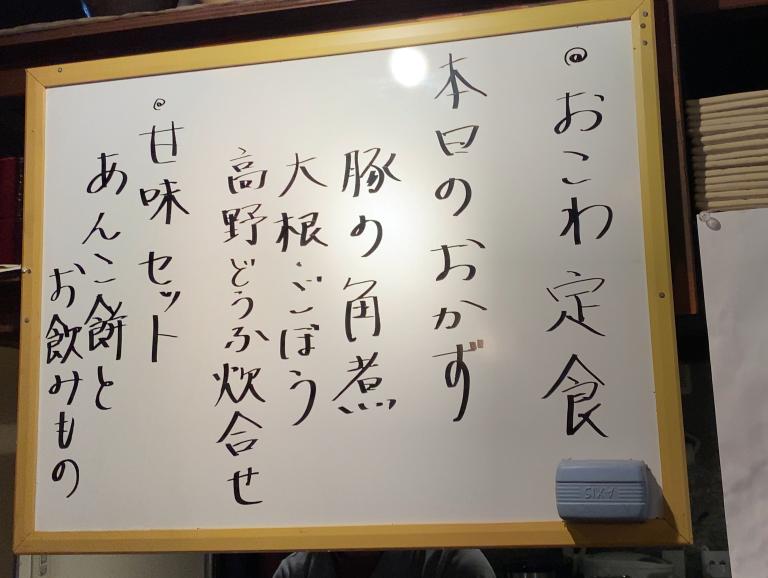 ◎おこわ定食
本日のおかず
豚の角煮
大根、ごぼう
高野どうふ炊合せ
◎甘味セット
あんこ餅と
お飲みもの
AXIS